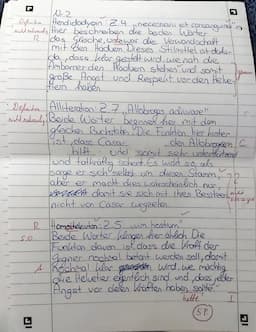 Nr. 2
Hendiadyoin: Z.4 „necessarii et consanguinei"
Hier beschreiben die beiden Wörter
das Gleiche, die Verwandschaft
mit den Haduern. Dieses Stilmittel ist dafür
da, dass klar gestellt wird, wie nah die
Ambarrer den Haduern stehen und somit
große Angst und Respekt vor den Helve-
tiern haben.
Definition
Alliteration: Z.7 „Allobroges adiuvare"
Beide Wörter beginnen hier mit dem
gleichen Buchstaben. Die Funktion hier hinter
ist, dass Caesar den Allobrogern
hilft und somit sehr unterstützend
und tatkräftig scheint. Es wirkt so, als
sorge er sich selbst um diesen Stamm,
aber er macht dies wahrscheinlich nur,
damit sie sich mit ihres Besitzes
nicht von Caesar wegreiten.
Z.5 vim hostium
Beide Wörter klingen hier gleich. Die
Funktion davon ist, dass die Kraft der
Gegner nochmal betont werden soll, damit
nochmal klar wird, wie mächtig
die Helvetier eigentlich sind und dass jeder
Angst vor deren Kräften haben sollte.
R
A
I
5P